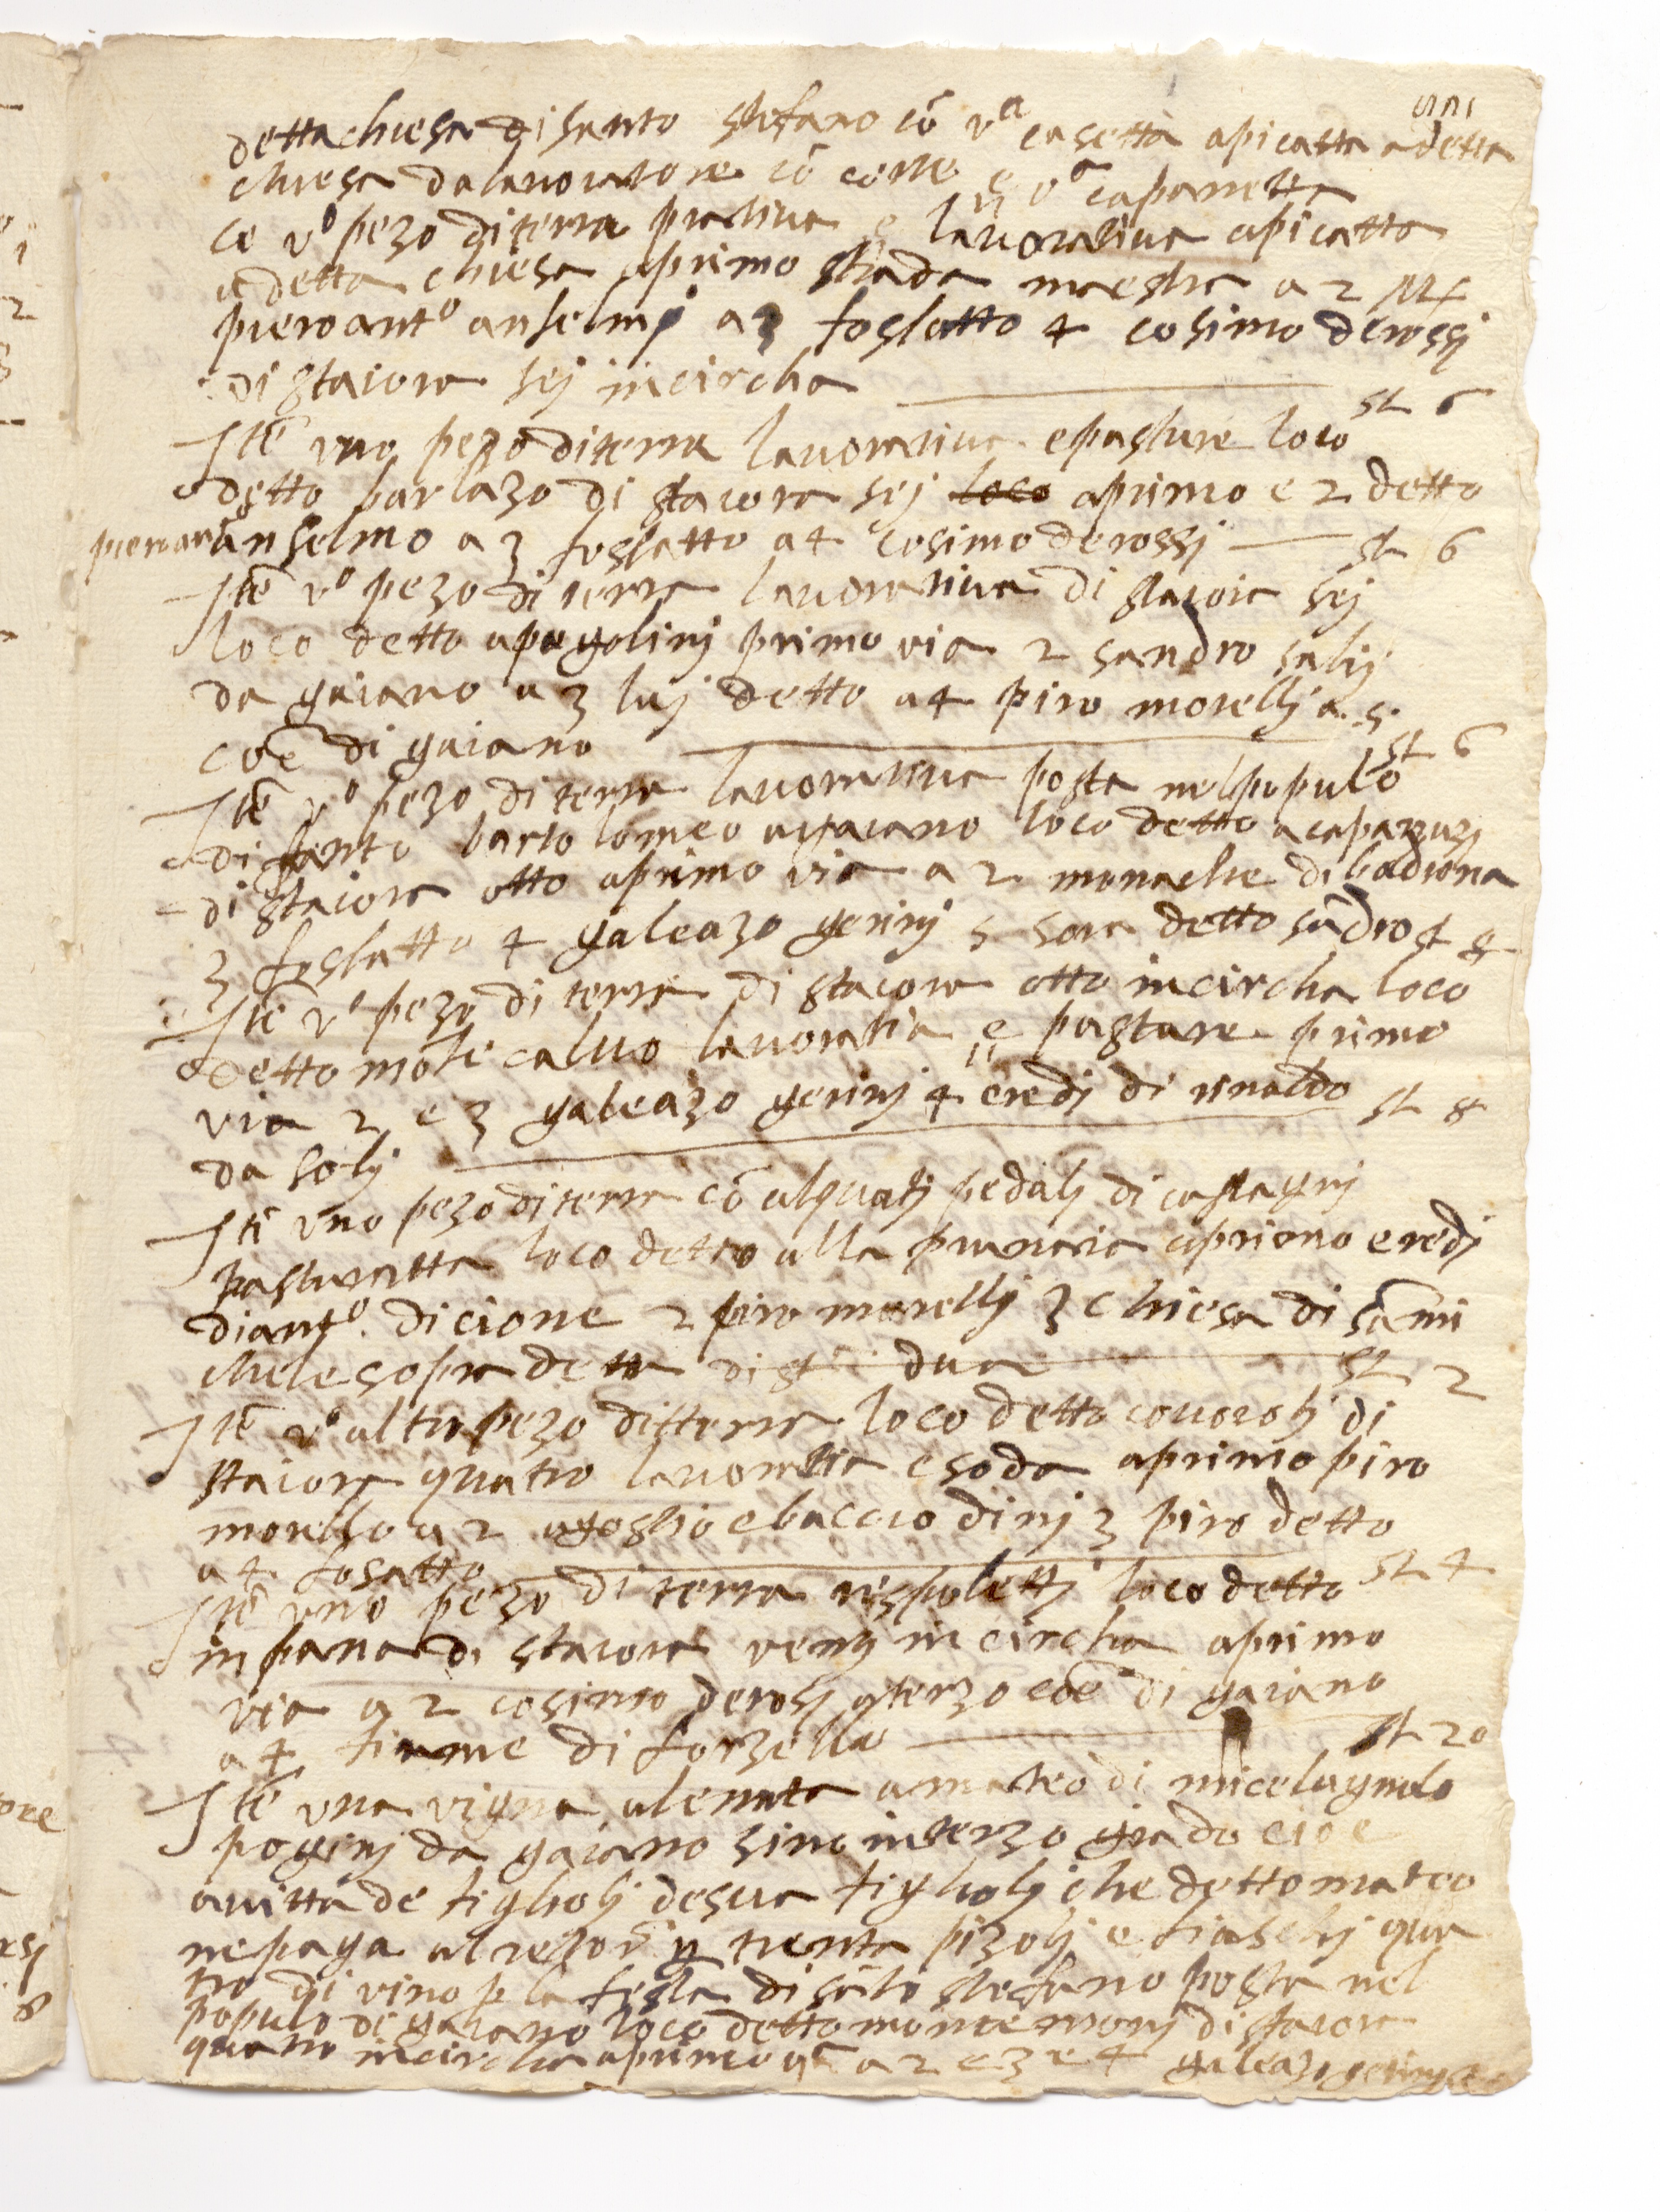 detta chiesa di santo stefano cō vª casetta apicatta a detta
chiesa da lavoratore cō corte e vª capannetta
ce v° pezo di terra prativa e lavorativa apicatta
a detta chiesa a primo strada maestra a 2
pieroant° anselmj a 3 fossatto 4 cosimo de rossj
di staiora sej incircha
Itē uno pezo di terra lavorativa e pasture loco st 6
detto barlazo di staiora sej loco a primo e 2 detto
pieroant° anselmo a 3 fossatto a 4 cosimo de rossj st 6
Itē v° pezo di terra lavorativa di staiora sej
loco detto apagolinj primo via 2 sandro salij
da gaiano a 3 luj detto a 4 piro morellj a 5
coē di gaiano st 6
Itē v° pezo di terra lavorativa posta nel populo
di santo bartolomeo a gaiano loco detto
di staiora otto a primo via a 2 monache di
3 fossatto 4 galeazo gerinj 5 detto sādro st 8
Itē v° pezo di terra di staiora otto incircha loco
detto mōte calvo lavoratia e pasture primo
via 2 e 3 galeazo gerinj 4 eredj di rinaldo st 8
da solj
Itē vno pezo di terra cō alquātj pedalj di castagnj
pasturatta loco detto alla a primo eredj
di ant° di cione 2 piro morellj 3 chiesa di sā mi
chele sopra detta di st dua st 2
Itē v° altro pezo di tterra loco detto di
staiora quatro lavoratia e soda a primo piro
morello a 2 e baccio dinj 3 piro detto
a 4 fosatto st 4
Itē vno pezo di terra loco detto
in pana di staiora ventj incircha a primo
via a 2 cosimo de rosj a terzo coē di gaiano
a 4 fiume di forzella st 20
Itē vna vigna alenata a mateo di micelagnolo
poginj da gaiano sino in terzo grado cioe
a vitta de figliolj de sua figliolj che detto mateo
ne paga al trenta pizolj e fiaschj qua
tro di vino p la festa di sāto stefano posta nel
populo di gaiano loco detto di staiora
quatro incircha a primo a 2 e 3 e 4 galeazo gerinj